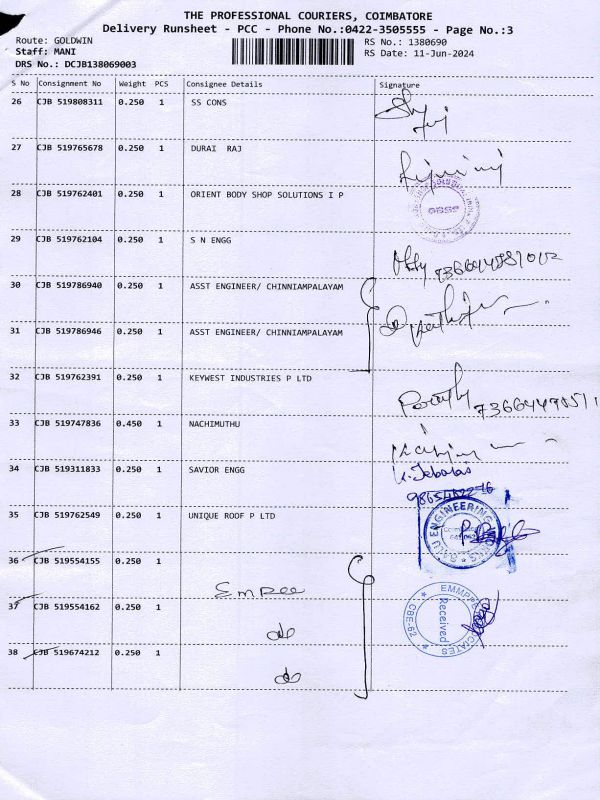 THE PROFESSIONAL COURIERS, COIMBATORE
Delivery Runsheet - PCC - Phone No.:0422-3505555 - Page No.:3
Route: GOLDWIN RS No.: 1380690
Staff: MANI RS Date: 11-Jun-2024
DRS No.: DCJB138069003
S No Consignment No Weight PCS Consignee Details Signature
26 CJB 519808311 0.250 1 SS CONS
27 CJB 519765678 0.250 1 DURAI RAJ
28 CJB 519762401 0.250 1 ORIENT BODY SHOP SOLUTIONS I P
29 CJB 519762104 0.250 1 S N ENGG
30 CJB 519786940 0.250 1 ASST ENGINEER/ CHINNIAMPALAYAM
31 CJB 519786946 0.250 1 ASST ENGINEER/ CHINNIAMPALAYAM
32 CJB 519762391 0.250 1 KEYWEST INDUSTRIES P LTD
33 CJB 519747836 0.450 1 NACHIMUTHU
34 CJB 519311833 0.250 1 SAVIOR ENGG
35 CJB 519762549 0.250 1 UNIQUE ROOF P LTD
ENGINEERING
36 CJB 519554155 0.250 1 Empee
37 CJB 519554162 0.250 1 do
Received
CBE-62
38 CJB 519674212 0.250 1 do